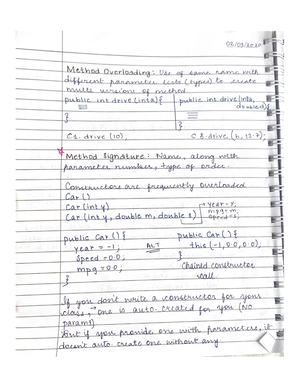 Method Overloading: Use of same name with
different parameter lists (types) to create
multi versions of method
public int drive (int a) { public int drive (int a,
double d) {
} }
C1. drive (10);
Method Signature: Name, along with
parameter number, type of order.
Constructors are frequently overloaded
Car ()
Car (int y)
Car (int y, double m, double s) → year = y;
mpg = m;
speed = s;
public Car () { public Car () {
year = -1; ALT this (-1, 0.0, 0.0);
speed = 0.0; }
mpg = 0.0; Chained constructor
} call
If you don't write a constructor for your
class, one is auto-created for you (NO
params)
But if you provide one with parameters, it
doesn't auto create one without any